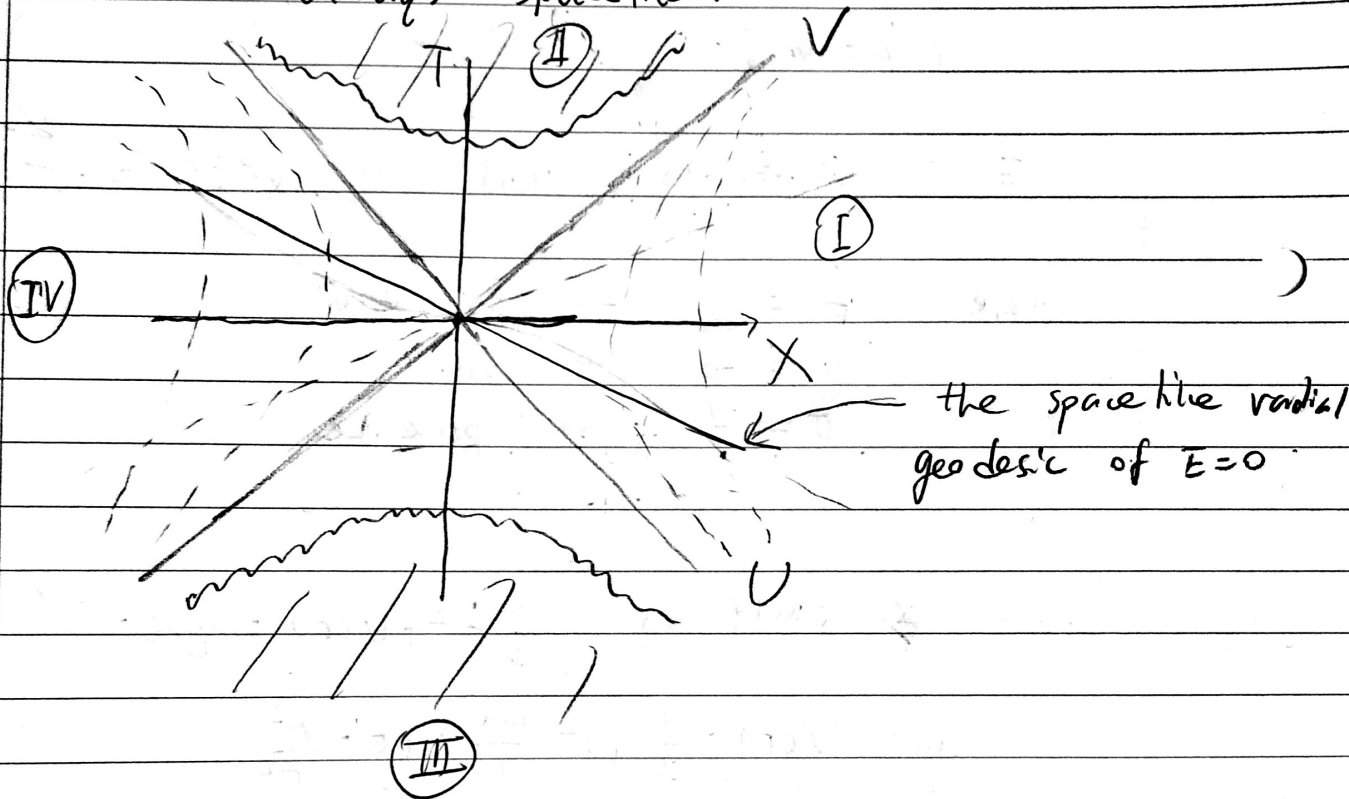 spacelike
T II V
I
)
IV
X
the spacelike radial
geodesic of E=0
U
III